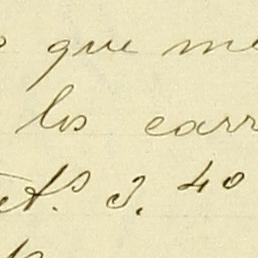 que me
los carr
cts. 3.40